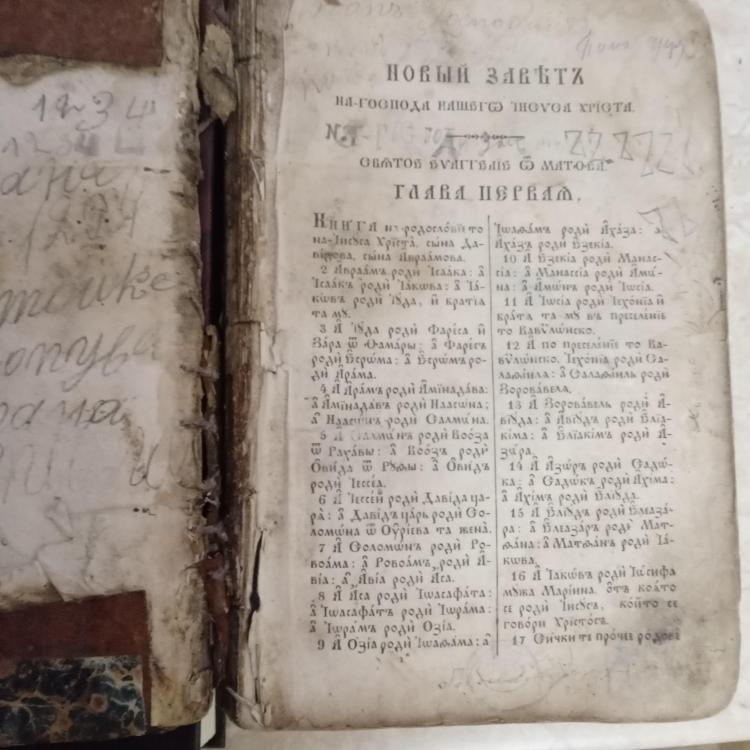 1234
1244
ана
1234
НОВЫЙ ЗАВѢТЪ
НА-ГОСПОДА НАШЕГѠ ІНСУСА ХРІСТА.
СВѦТОЕ ЕѴАГГЕЛІЕ Ѿ МАТѲЕА.
ГЛАВА ПЕРВАѦ.
КНИГА на родословіе то
на-Інсуса Хрiста, сына Да-
вiдова, сына Авраамова.
2 А҆враа́мъ роди̏ І҆саа́ка: а҆̀
І҆саа́къ роди̏ І҆а́кѡва: а҆̀ І҆а́-
кѡвъ роди̏ І҆ꙋ́да, и҆ бра́тїѧ
та мꙋ̀.
3 А҆̀ І҆ꙋ́да роди̏ Фаре́са и҆
За́ра ѿ Ѳама́ры: а҆̀ Фаре́съ
роди̏ Е҆срѡ́ма: а҆̀ Е҆срѡ́мъ ро-
ди̏ А҆ра́ма.
4 А҆̀ А҆ра́мъ роди̏ А҆мїнада́ва:
а҆̀ А҆мїнада́въ роди̏ Наасѡ́на;
а҆̀ Наасѡ́нъ роди̏ Салмѡ́на.
5 А҆̀ Салмѡ́нъ роди̏ Воо́за
ѿ Раха́вы: а҆̀ Воо́зъ роди̏
Ѻ҆ви́да ѿ Рꙋ́ѳы: а҆̀ Ѻ҆ви́дъ
роди̏ І҆ессе́а.
6 А҆̀ І҆ессе́й роди̏ Даві́да ца-
рѧ̀: а҆̀ Даві́дъ ца́рь роди̏ Со-
ломѡ́на ѿ Оу҆рі́ева та жена̀.
7 А҆̀ Соломѡ́нъ роди̏ Ро-
воа́ма: а҆̀ Ровоа́мъ роди̏ А҆-
ві́а: а҆̀ А҆ві́а роди̏ А҆́са.
8 А҆̀ А҆́са роди̏ І҆ѡсафа́та:
а҆̀ І҆ѡсафа́тъ роди̏ І҆ѡра́ма:
а҆̀ І҆ѡра́мъ роди̏ Ѻ҆зі́а.
9 А҆̀ Ѻ҆зі́а роди̏ І҆ѡаѳа́ма: а҆̀
І҆ѡаѳа́мъ роди̏ А҆ха́за: а҆̀
А҆ха́зъ роди̏ Е҆зекі́а.
10 А҆̀ Е҆зекі́а роди̏ Манас-
сі́а: а҆̀ Манассі́а роди̏ А҆мѡ́-
на: а҆̀ А҆мѡ́нъ роди̏ І҆ѡсі́а.
11 А҆̀ І҆ѡсі́а роди̏ І҆ехо́нїа и҆
бра́тѧ та мꙋ̀ въ преселе́нїе
то Вавѷлѡ́нско.
12 А҆̀ по преселе́нїе то Ва-
вѷлѡ́нско, І҆ехо́нїа роди̏ Са-
лаѳі́ила: а҆̀ Салаѳі́иль роди̏
Зорова́велѧ.
13 А҆̀ Зорова́вель роди̏ А҆-
вїꙋ́да: а҆̀ А҆вїꙋ́дъ роди̏ Е҆лїа-
кі́ма: а҆̀ Е҆лїакі́мъ роди̏ А҆-
зѡ́ра.
14 А҆̀ А҆зѡ́ръ роди̏ Садѡ́-
ка: а҆̀ Садѡ́къ роди̏ А҆хі́ма:
а҆̀ А҆хі́мъ роди̏ Е҆лїꙋ́да.
15 А҆̀ Е҆лїꙋ́дъ роди̏ Е҆леаза́-
ра: а҆̀ Е҆леаза́ръ роди̏ Мат-
ѳа́на: а҆̀ Матѳа́нъ роди̏ І҆а́-
кѡва.
16 А҆̀ І҆а́кѡвъ роди̏ І҆ѡ́сифа
мꙋ́жа Марі́ина. ѿ коѧ́то
се роди̏ І҆нсꙋ́съ, ко́йто се
гово́ри Хрїсто́съ.
17 Си́чки те про́чее родове́